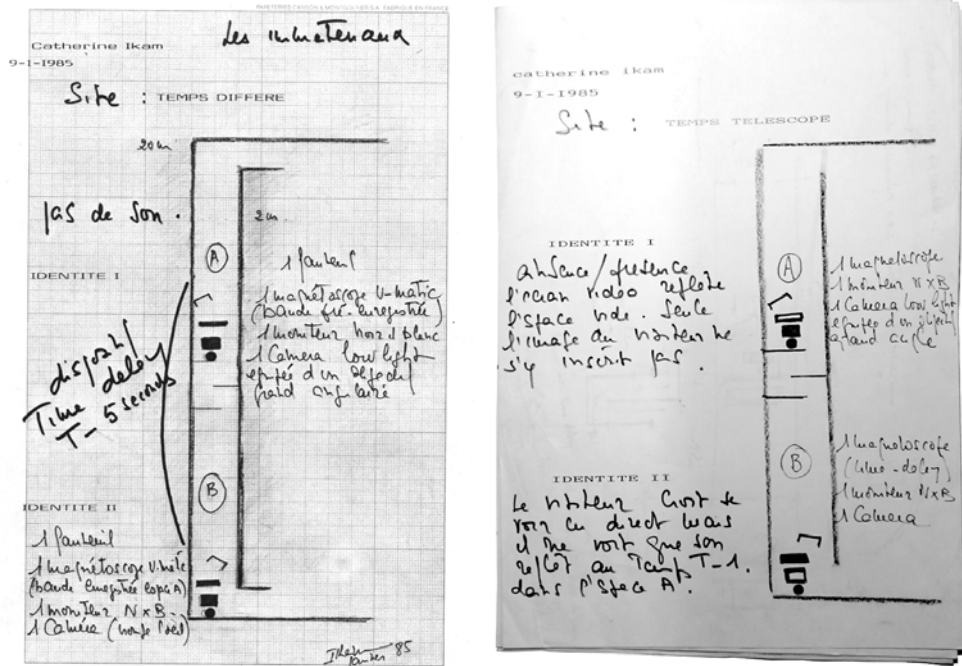 PAPETERIES CANSON & MONTGOLFIER S.A. FABRIQUE EN FRANCE
Les immateriaux
Catherine Ikam
9-I-1985
Site : TEMPS DIFFERE
20 m
pas de son.
2 m
A
IDENTITE I
1 fauteuil
1 magnétoscope U-matic
(bande pré-enregistrée)
1 moniteur noir et blanc
1 Caméra low light
équipée d'un objectif
grand angulaire
dispositif
delay
Time delay
T- 5 seconds
B
IDENTITE II
1 fauteuil
1 magnétoscope U-matic
(bande enregistrée espace A)
1 moniteur N x B
1 Caméra
Ikam
85
catherine ikam
9-I-1985
Site : TEMPS TELESCOPE
IDENTITE I
absence/presence
l'écran vidéo reflète
l'espace vide. Seule
l'image du visiteur ne
s'y inscrit pas.
A
1 magnetoscope
1 moniteur N x B
1 Camera low light
équipée d'un objectif
grand angle
IDENTITE II
Le visiteur croit se
voir en direct mais
il ne voit que son
reflet au Temps T-1.
dans l'espace A.
B
1 magnetoscope
(time-delay)
1 moniteur N x B
1 Camera